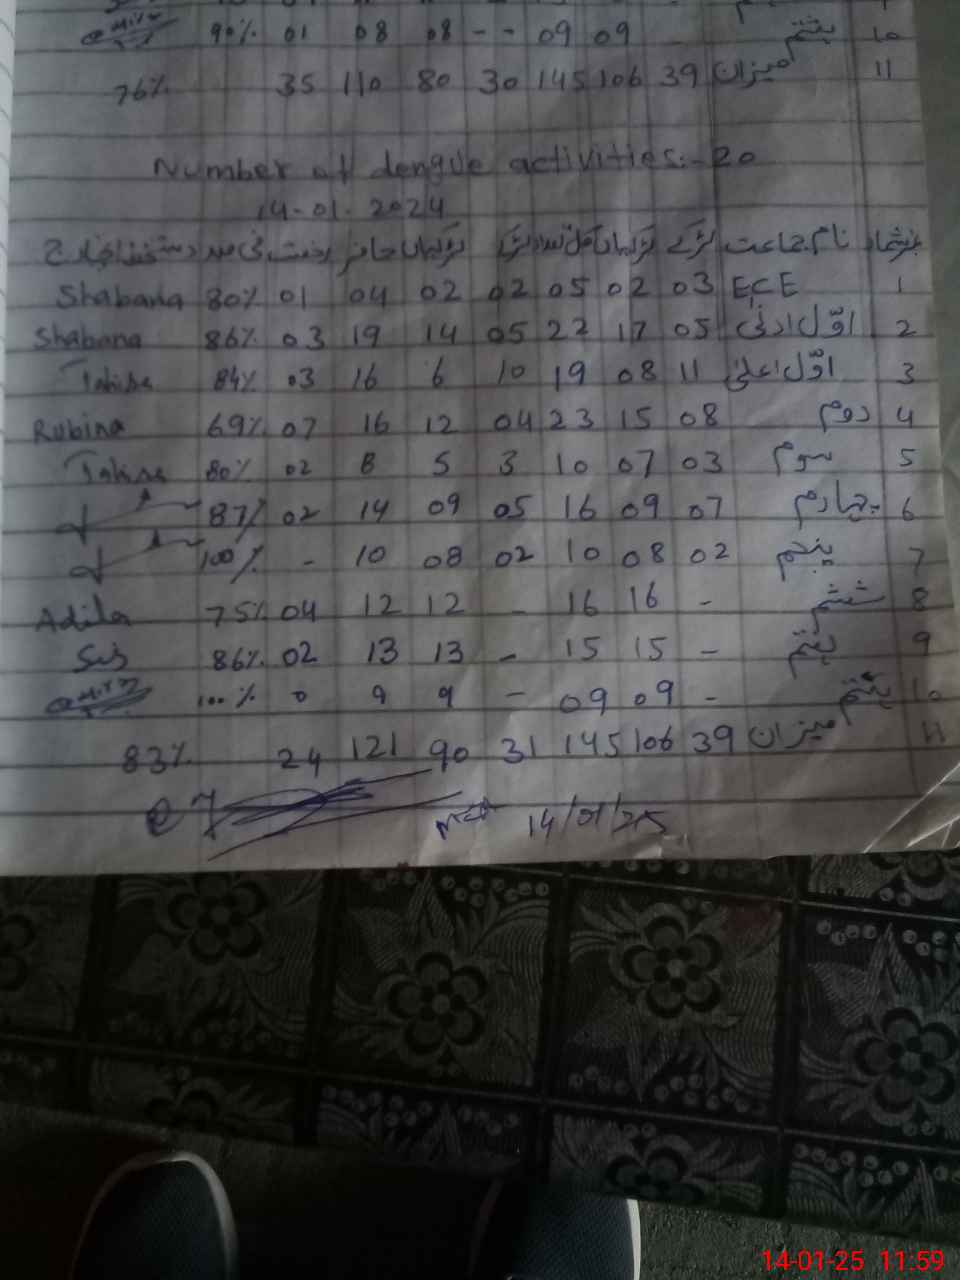 90% 01 08 08 - - 09 09 ہشتم 10
76% 35 110 80 30 145 106 39 میزان 11
Number of dengue activities:-20
14-01-2024
نمبر شمار نام جماعت لڑکے لڑکیاں کل تعداد لڑکے لڑکیاں حاضر رخصت فی صد دستخط انچارج
Shabana 80% 01 04 02 02 05 02 03 ECE 1
Shabana 86% 03 19 14 05 22 17 05 اوّل ادنیٰ 2
84% 03 16 6 10 19 08 11 اوّل اعلیٰ 3
Rubina 69% 07 16 12 04 23 15 08 دوم 4
80% 02 8 5 3 10 07 03 سوم 5
87% 02 14 09 05 16 09 07 چہارم 6
100% - 10 08 02 10 08 02 پنجم 7
Adila 75% 04 12 12 - 16 16 - ششم 8
86% 02 13 13 - 15 15 - ہفتم 9
100% 0 9 9 - 09 09 - ہشتم 10
83% 24 121 90 31 145 106 39 میزان 11
14/01/25
14-01-25 11:59